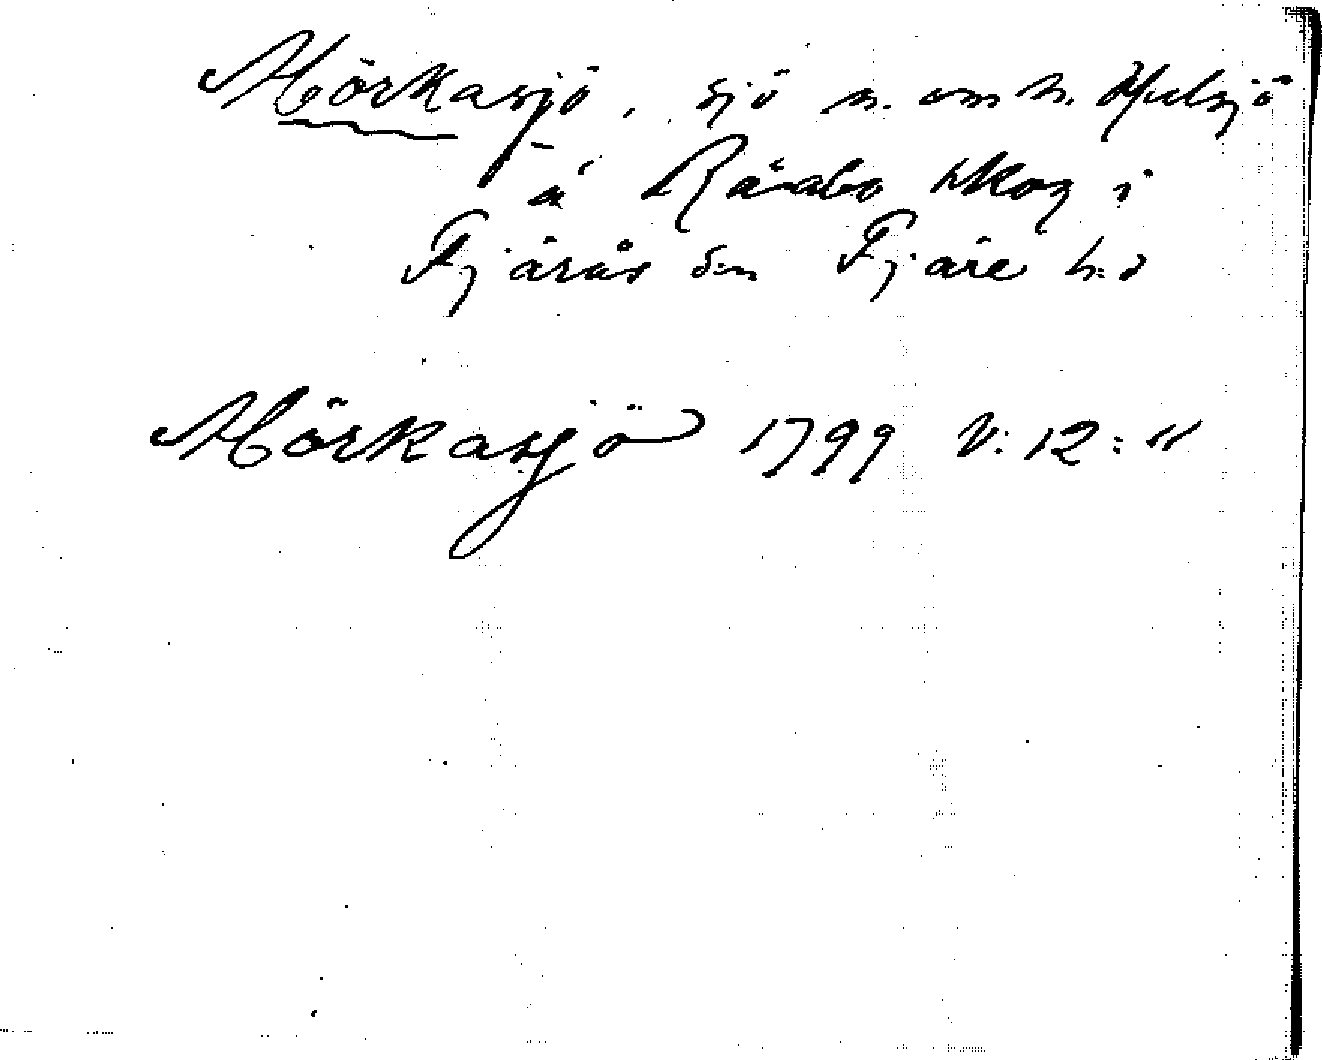 Mörkasjö, sjö n. om n. Hulsjö
å Råabo skog i
Fjärås sn Fjäre hd
Mörkasjö 1799 V: 12: 11